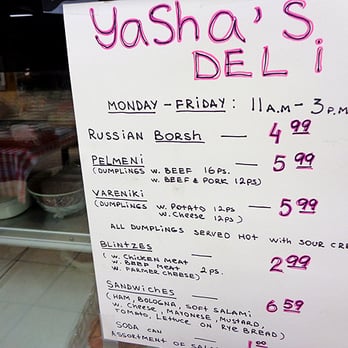 Yasha's
Deli
Monday - Friday: 11 A.M - 3 P.M
Russian Borsh — 4 99
Pelmeni — 5 99
(Dumplings w. Beef 16 ps.
w. Beef & Pork 12 ps)
Vareniki — 5 99
(Dumplings w. Potato 12 ps
w. Cheese 12 ps)
All dumplings served hot with sour
Blintzes — 2 99
(w. Chicken meat
w. Beef meat 2 ps.
w. Farmer cheese)
Sandwiches — 6 59
(Ham, Bologna, Soft Salami
w. Cheese, Mayonese, Mustard,
Tomato, Lettuce on Rye Bread)
Soda can
Assortment of